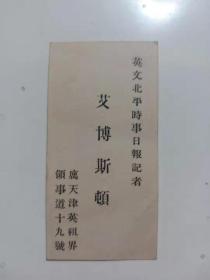 英文北平時事日報記者
艾博斯頓
寓天津英租界
領事道十九號